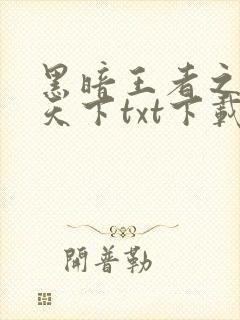 黑暗王者之
天下txt下載
開普勒